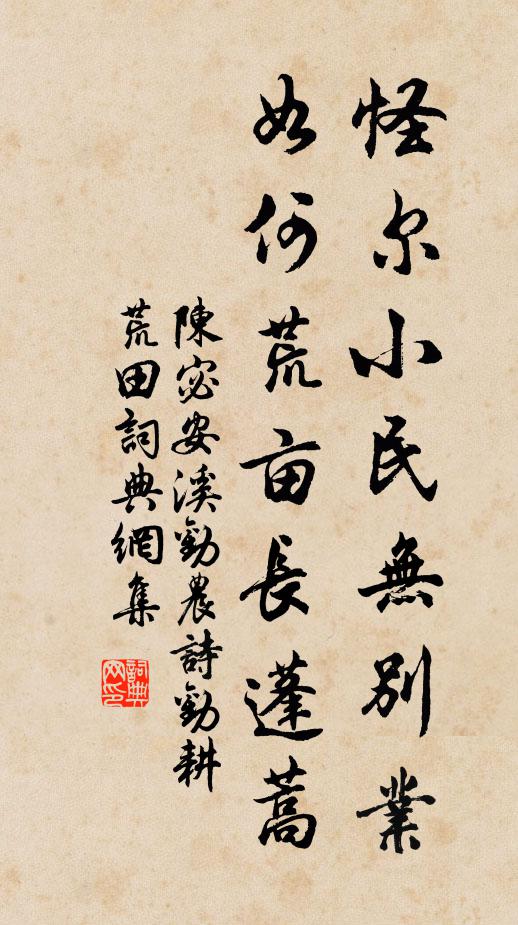 怪尔小民無別業
如何荒亩長蓬蒿
陳宓安溪勸農詩勸耕
荒田詞典網集
詞典网印